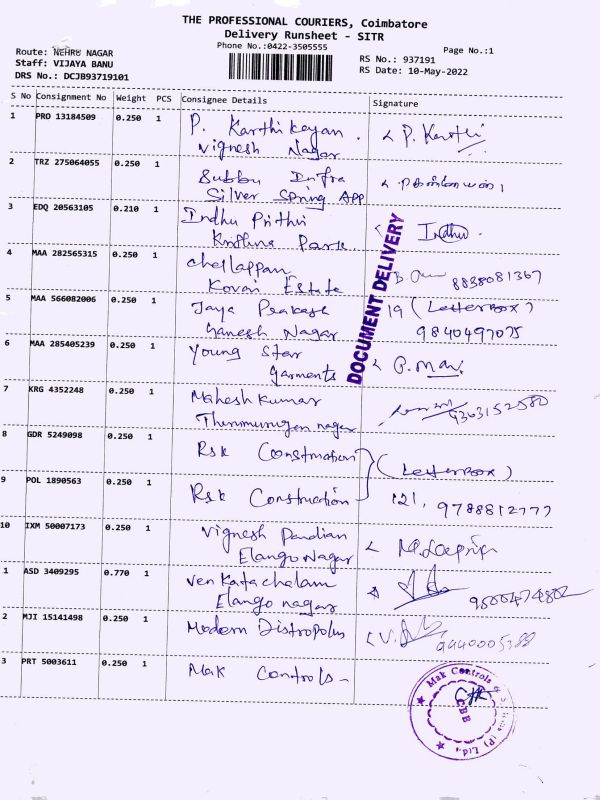 THE PROFESSIONAL COURIERS, Coimbatore
Delivery Runsheet - SITR
Phone No.:0422-3505555
Page No.:1
Route: NEHRU NAGAR
RS No.: 937191
Staff: VIJAYA BANU
RS Date: 10-May-2022
DRS No.: DCJB93719101
S No Consignment No Weight PCS Consignee Details Signature
1 PRO 13184509 0.250 1 P. Karthikeyan. P. Karthi
Vignesh Nagar
2 TRZ 275064055 0.250 1 Subbu Infra
Silver Spring APP
3 EDQ 20563105 0.210 1 Indhu Prithi Indhu.
Krithna Park.
4 MAA 282565315 0.250 1 Chellappan 8838081367
Kovai Estate
5 MAA 566082006 0.250 1 Jaya Prakash 19 (Letterbox)
Ganesh Nagar 9840497075
6 MAA 285405239 0.250 1 Young Star
garments
7 KRG 4352248 0.250 1 Mahesh Kumar 9363152580
Thirumurugan nagar
8 GDR 5249098 0.250 1 Rsk Construction (Letterbox)
9 POL 1890563 0.250 1 Rsk Construction 121, 9788812777
10 IXM 50007173 0.250 1 Vignesh Pandian
Elango Nagar
1 ASD 3409295 0.770 1 Venkatachalam
Elango nagar
2 MJI 15141498 0.250 1 Modern Distropolus 9940005388
3 PRT 5003611 0.250 1 Mak Controls -
DOCUMENT DELIVERY
Mak Controls
CBE
(P) Ltd.